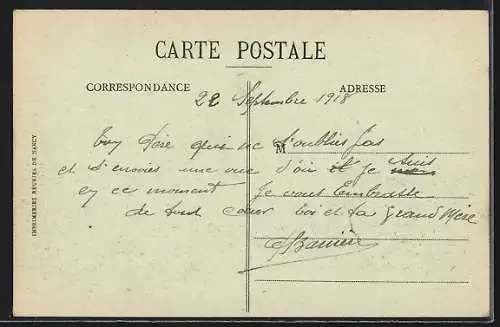 CARTE POSTALE
CORRESPONDANCE
ADRESSE
22 Septembre 1918
Ton Père qui ne t'oublies pas
M
et t'envoies une vue d'où il je suis
en ce moment Je vous Embrasse
de tout coeur toi et ta grand Mère
IMPRIMERIES RÉUNIES DE NANCY